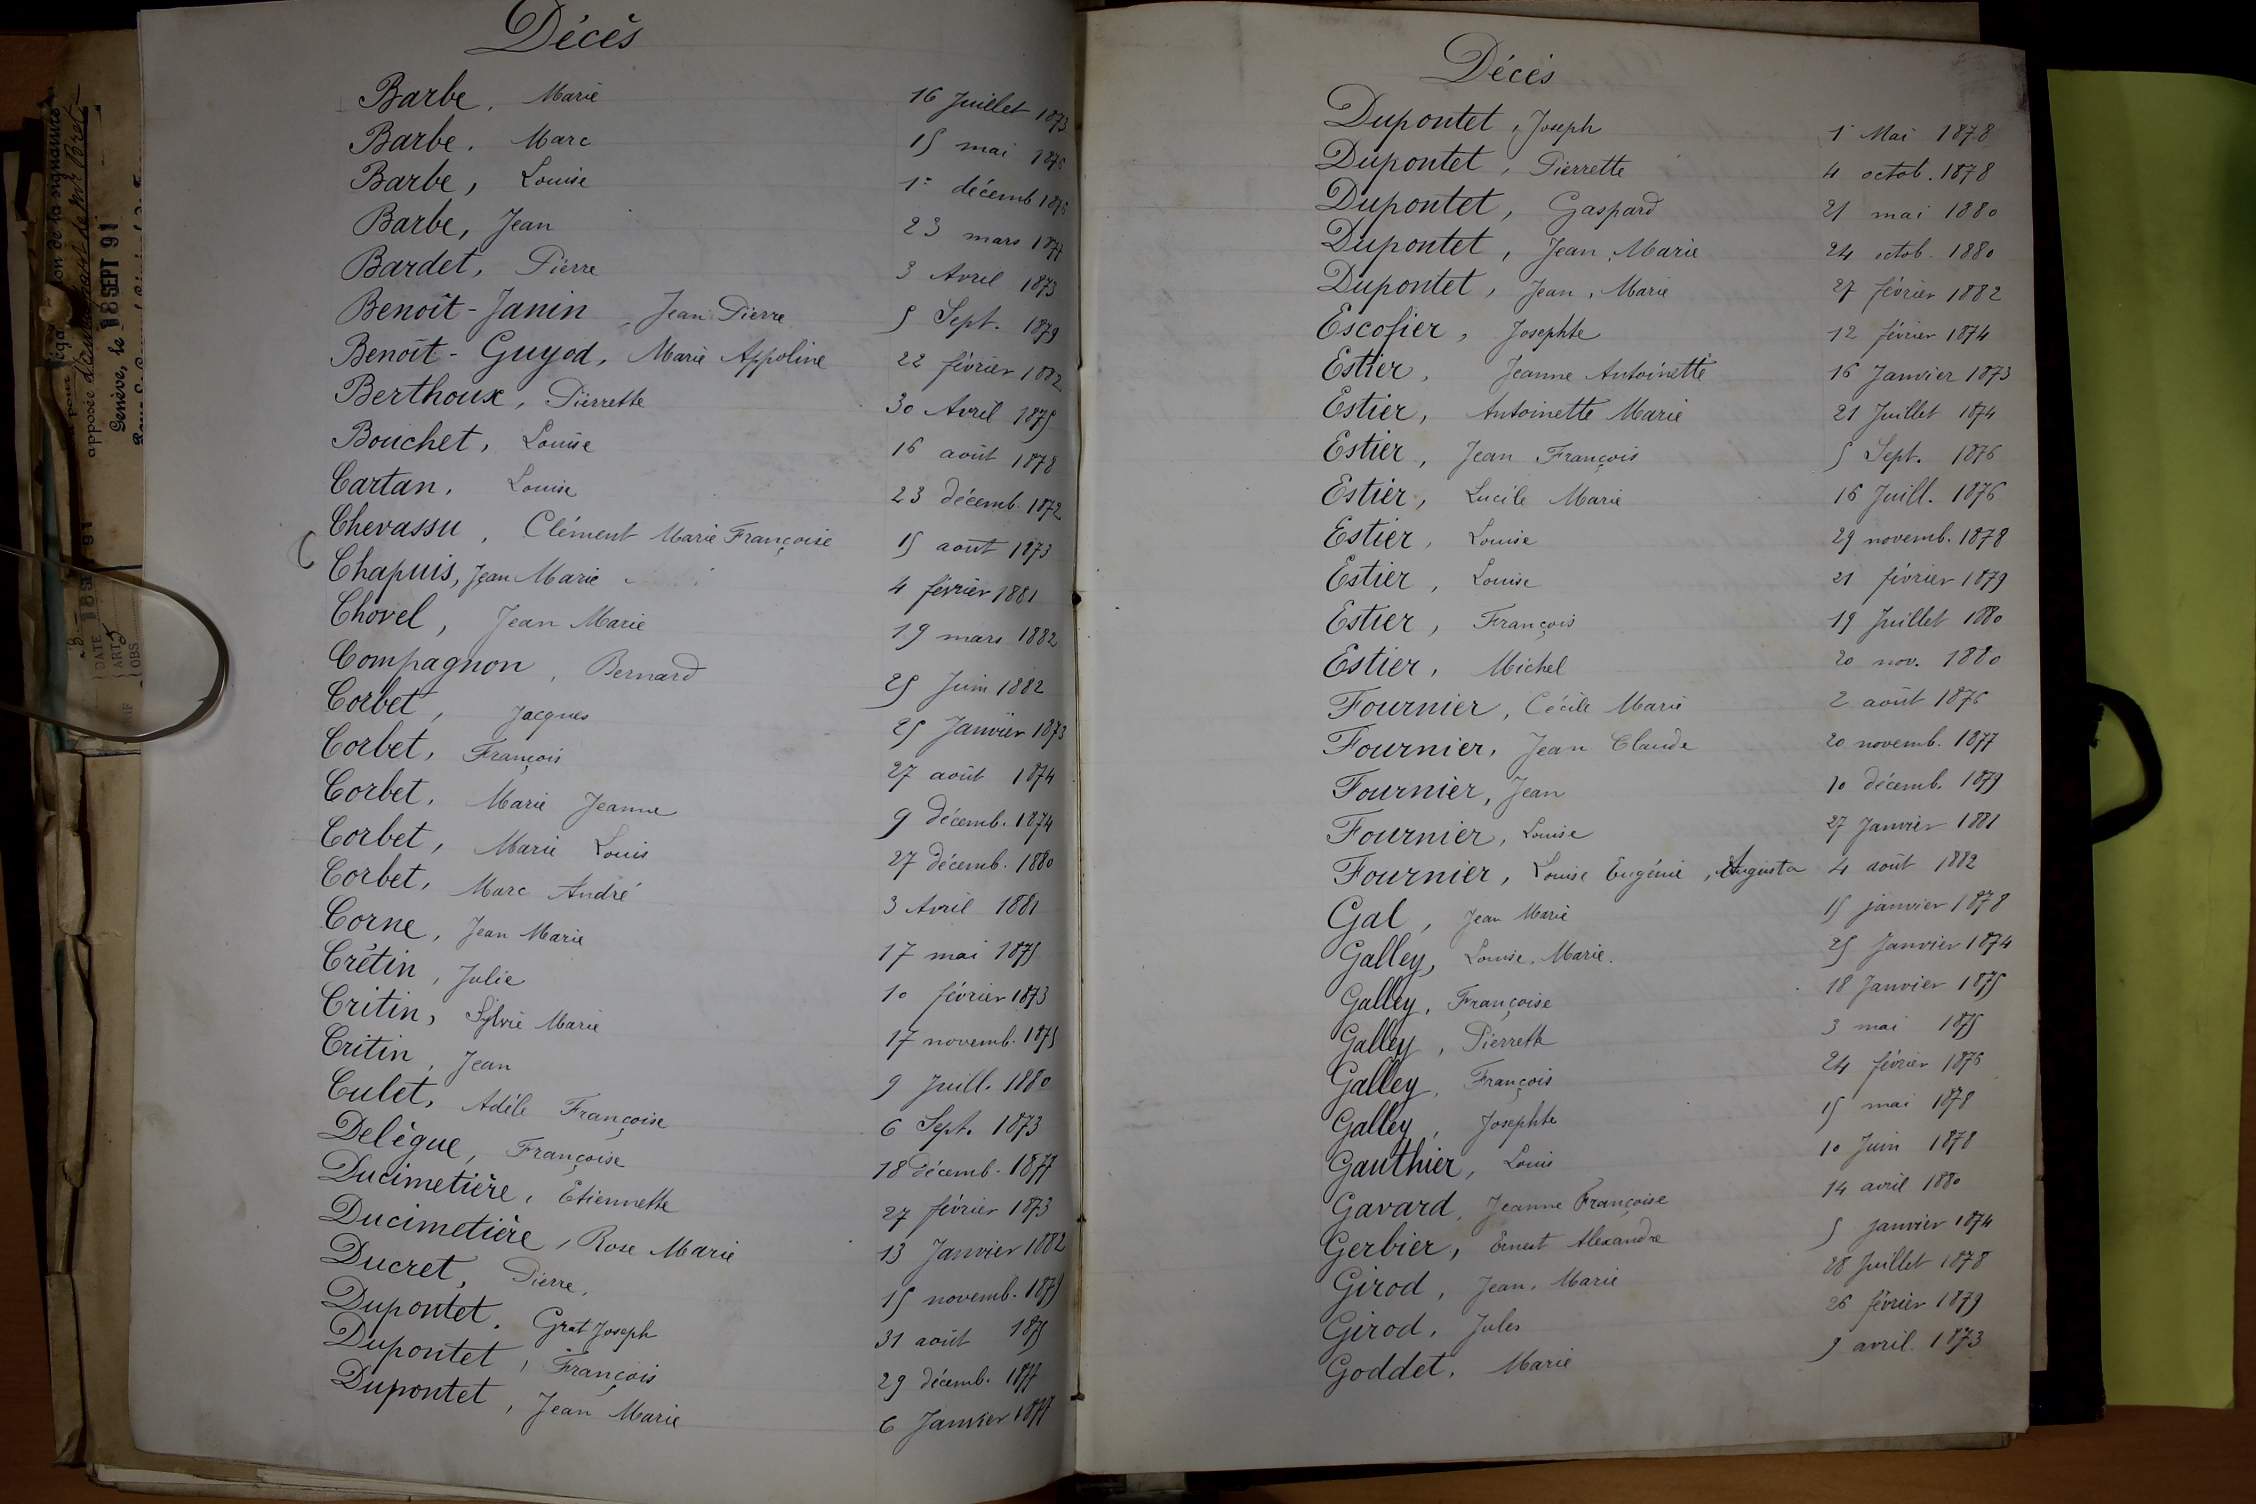 Décès
Barbe, Marie 16 Juillet 1873
Barbe, Marc 15 mai 1876
Barbe, Louise 1er décemb 1876
Barbe, Jean 23 mars 1877
Bardet, Pierre 3 Avril 1873
Benoît-Janin, Jean Pierre 5 Sept. 1879
Benoît-Guyod, Marie Appoline 22 février 1882
Berthoux, Pierrette 30 Avril 1875
Bouchet, Louise 16 août 1878
Cartan, Louise 23 décemb. 1872
Chevassu, Clément Marie Françoise 15 août 1873
Chapuis, Jean Marie 4 février 1881
Chovel, Jean Marie 19 mars 1882
Compagnon, Bernard 25 Juin 1882
Corbet, Jacques 25 Janvier 1873
Corbet, François 27 août 1874
Corbet, Marie Jeanne 9 décemb. 1874
Corbet, Marie Louis 27 décemb. 1880
Corbet, Marc André 3 Avril 1881
Corne, Jean Marie 17 mai 1875
Crétin, Julie 10 février 1873
Critin, Sylvie Marie 17 novemb. 1875
Critin, Jean 9 Juill. 1880
Culet, Adèle Françoise 6 Sept. 1873
Delègue, Françoise 18 décemb. 1877
Ducimetière, Etiennette 27 février 1873
Ducimetière, Rose Marie 13 Janvier 1882
Ducret, Pierre, 15 novemb. 1875
Dupontet, Grat Joseph 31 août 1875
Dupontet, François 29 décemb. 1877
Dupontet, Jean Marie 6 Janvier 1877
Décès
Dupontet, Joseph 1er Mai 1878
Dupontet, Pierrette 4 octob. 1878
Dupontet, Gaspard 21 mai 1880
Dupontet, Jean, Marie 24 octob. 1880
Dupontet, Jean, Marie 27 février 1882
Escofier, Josephte 12 février 1874
Estier, Jeanne Antoinette 16 Janvier 1873
Estier, Antoinette Marie 21 Juillet 1874
Estier, Jean François 5 Sept. 1876
Estier, Lucile Marie 16 Juill. 1876
Estier, Louise 29 novemb. 1878
Estier, Louise 21 février 1879
Estier, François 19 Juillet 1880
Estier, Michel 20 nov. 1880
Fournier, Cécile Marie 2 août 1876
Fournier, Jean Claude 20 novemb. 1877
Fournier, Jean 10 décemb. 1879
Fournier, Louise 27 Janvier 1881
Fournier, Louise Eugénie, Augusta 4 août 1882
Gal, Jean Marie 15 janvier 1878
Galley, Louise, Marie. 25 Janvier 1874
Galley, Françoise 18 Janvier 1875
Galley, Pierrette 3 mai 1875
Galley, François 24 février 1876
Galley, Josephte 15 mai 1878
Gauthier, Louis 10 Juin 1878
Gavard, Jeanne Françoise 14 avril 1880
Gerbier, Ernest Alexandre 5 janvier 1874
Girod, Jean, Marie 28 Juillet 1878
Girod, Jules 26 février 1879
Goddet, Marie 9 avril. 1873
apposée
Genève, le 18 SEPT 91
DATE
ART
OBS